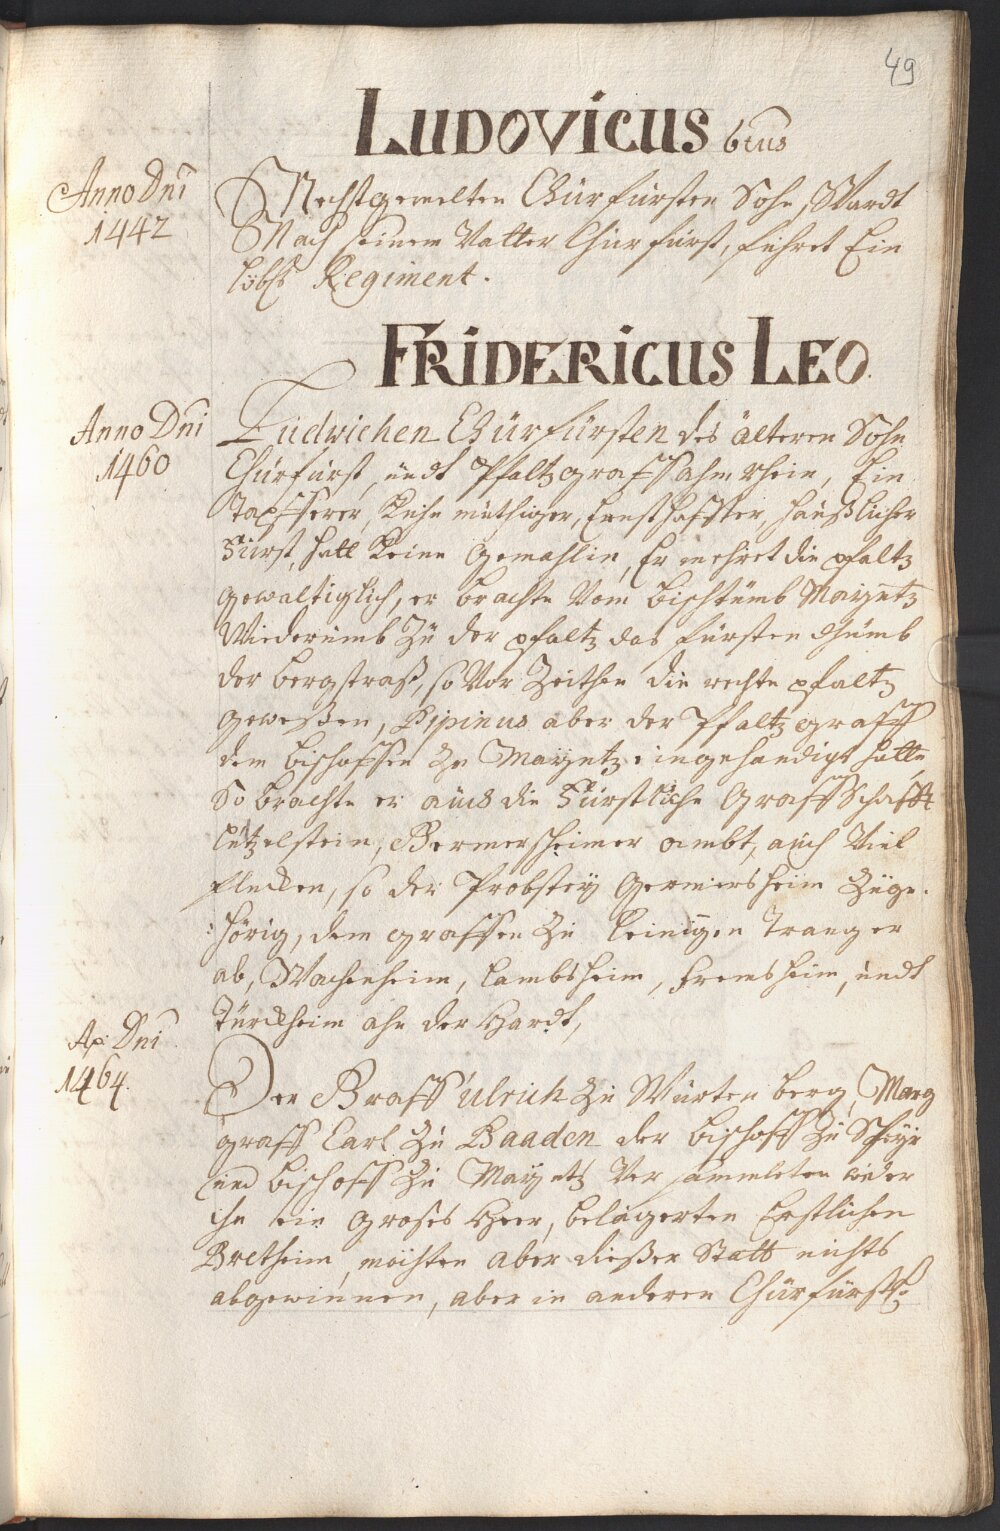 49
LUDOVICUS 6tus
Anno Dni
1442
Nechstgemelten Chürfürsten Sohn, Wardt
Nach seinem Vatter Chürfürst, führet Ein
löbls Regiment.
FRIDERICUS LEO.
Anno Dni
1460
Ludwichen Chürfürsten des älteren Sohn
Chürfürst, undt Pfaltzgraff ahm rhein, Ein
Tapfferer, Kühn müthiger, Ernsthaffter, häußlicher
Fürst, hatt Keine Gemahlin, Er mehret die pfaltz
gewaltiglich, er brachte Vom Bischtumb Mayntz
Wiederümb Zü der pfaltz das fürstenthümb
der bergstraß, so Vor Zeithen die rechte pfaltz
geweßen, Pipinus aber der Pfaltzgraff
dem bischoffen Zu Mayntz eingehändigt hatte
So brachte er auch die Fürstliche Graffschafft
Lützelstein, Germersheimer ambt, auch Viel
flecken, so der Probstey Germersheim Züge-
:hörig, dem graffen Zü Leinigen trang er
ab, Wachenheim, Lambsheim, undt
Türckheim ahn der Hardt,
Ao: Dni
1464.
Der Graff Ulrich Zü Würtenberg, Marg
graff Carl Zü Baaden der bischoff Zü Speyr
und bischoff Zü Mayntz Versammleten wieder
ihn ein großes Heer, belägerten Erstlichen
Bretheim, möchten aber dießer Statt nichts
abgewinnen, aber in anderen Chürfürstl: